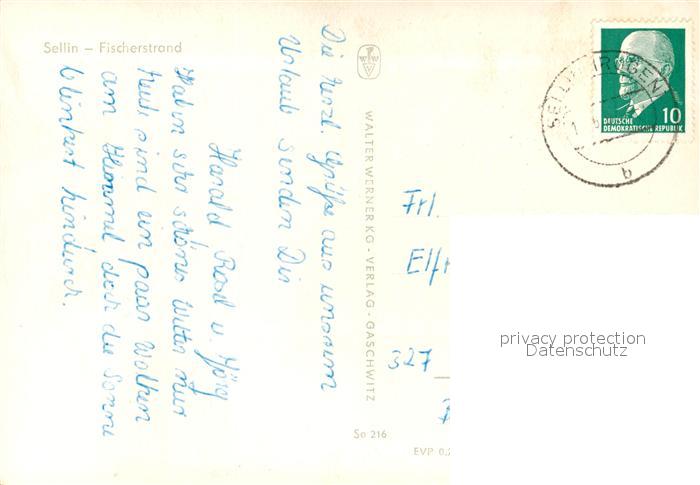 Sellin – Fischerstrand
Die herzl. Grüße aus unserem
Urlaub senden Dir
Harald Rosl u. Jörg
Haben sehr schönes Wetter nur
heute sind ein paar Wolken
am Himmel doch die Sonne
blinkert hindurch.
WALTER WERNER KG - VERLAG - GASCHWITZ
So 216
EVP 0,2
10
DEUTSCHE
DEMOKRATISCHE REPUBLIK
SELLIN (RÜGEN)
b
Frl.
Elfr
327
privacy protection
Datenschutz